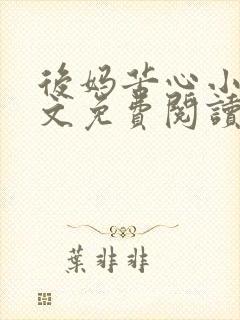 後妈苦心小
文免費閱讀
葉非非